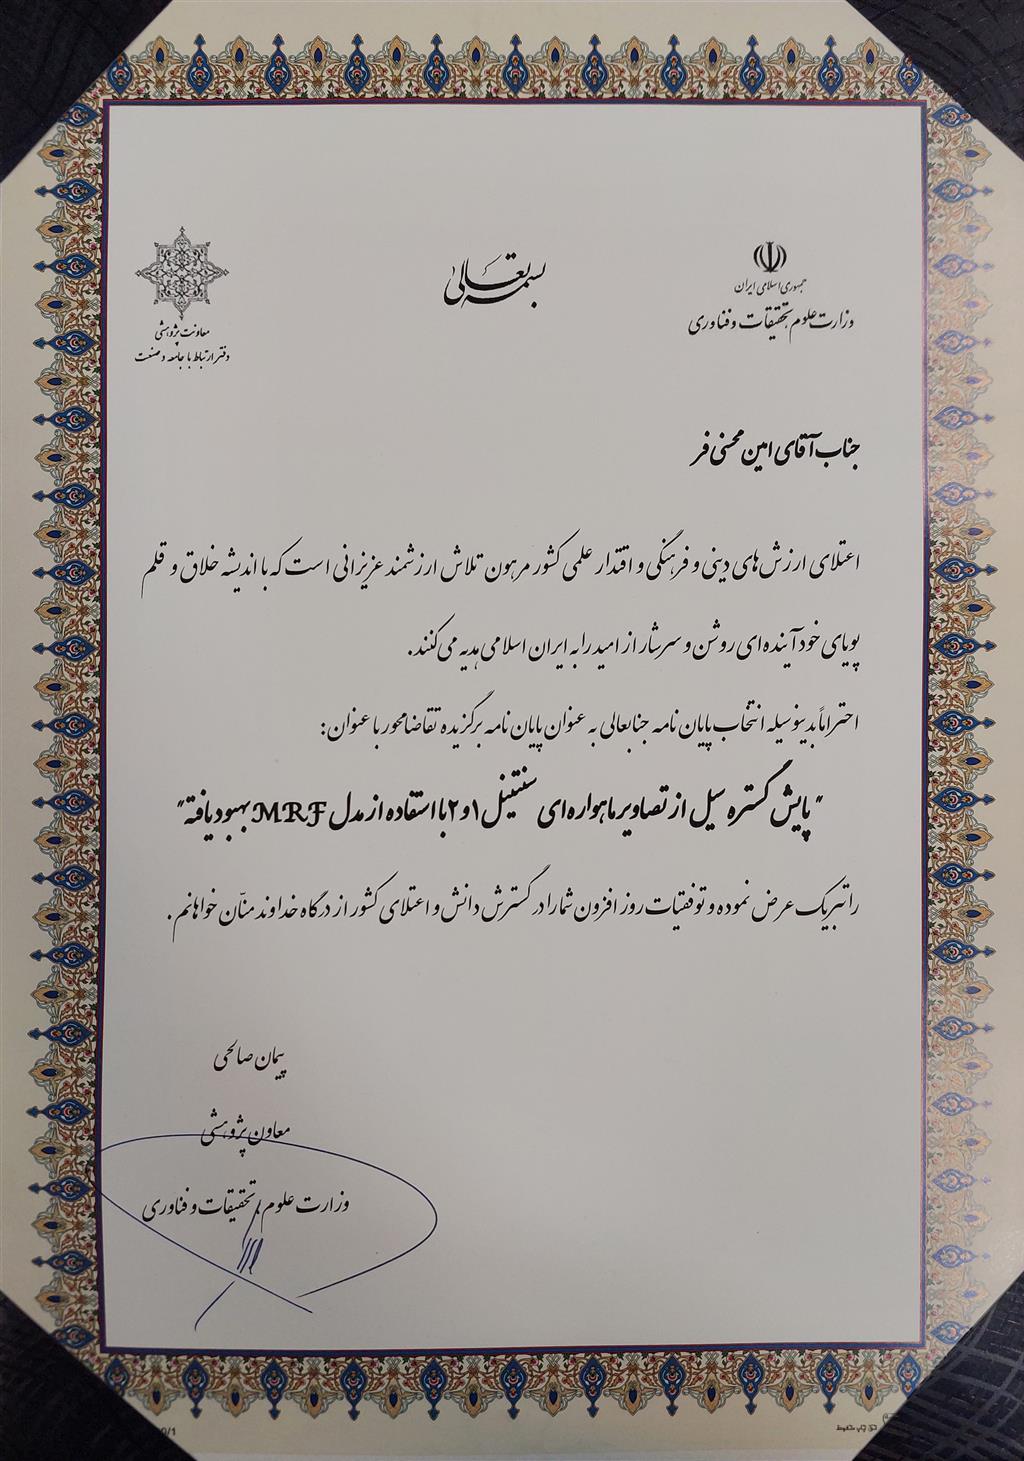 بسمه تعالی
جمهوری اسلامی ایران
وزارت علوم تحقیقات و فناوری
معاونت پژوهشی
دفتر ارتباط با جامعه و صنعت
جناب آقای امین محسنی فر
اعتلای ارزش های دینی و فرهنگی و اقتدار علمی کشور مرهون تلاش ارزشمند عزیزانی است که با اندیشه خلاق و قلم
پویای خود آینده ای روشن و سرشار از امید را به ایران اسلامی هدیه می کنند.
احتراماً بدینوسیله انتخاب پایان نامه جنابعالی به عنوان پایان نامه برگزیده تقاضامحور با عنوان:
"پایش گستره سیل از تصاویر ماهواره ای سنتینل ۱ و ۲ با استفاده از مدل MRF بهبود یافته"
را تبریک عرض نموده و توفقیات روز افزون شما را در گسترش دانش و اعتلای کشور از درگاه خداوند منّان خواهانم.
پیمان صالحی
معاون پژوهشی
وزارت علوم، تحقیقات و فناوری
حق چاپ محفوظ
0/1